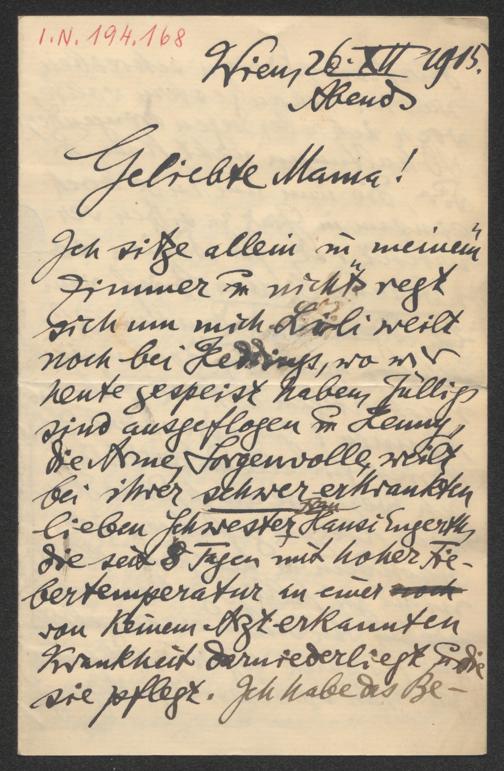 I.N. 194.168
Wien, 26. XII 1915.
Abends
Geliebte Mama!
Ich sitze allein in meinem
Zimmer u nichts regt
sich um mich. Loli weilt
noch bei, wo wir
heute gespeist haben,
sind ausgeflogen u Henny,
die Arme, Sorgenvolle, weilt
bei ihrer schwer erkrankten
lieben Schwester, Hansi Engerth,
die seit 8 Tagen mit hoher Fie-
bertemperatur an einer noch
von keinem Arzt erkannten
Krankheit darniederliegt u die
sie pflegt. Ich habe das Be-